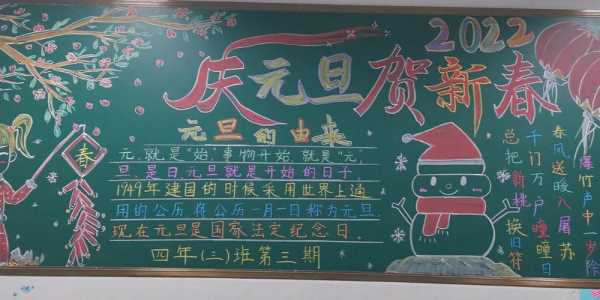 2022
庆元旦贺新春
元旦的由来
元,就是"始,事物开始,就是"元,
旦,是日元旦就是开始的日子,
1949年建国的时候采用世界上通
用的公历将公历一月一日称为元旦.
现在元旦是国家法定纪念日.
四年(二)班第三期
春
爆竹声中一岁除
春风送暖入屠苏
千门万户曈曈日
总把新桃换旧符